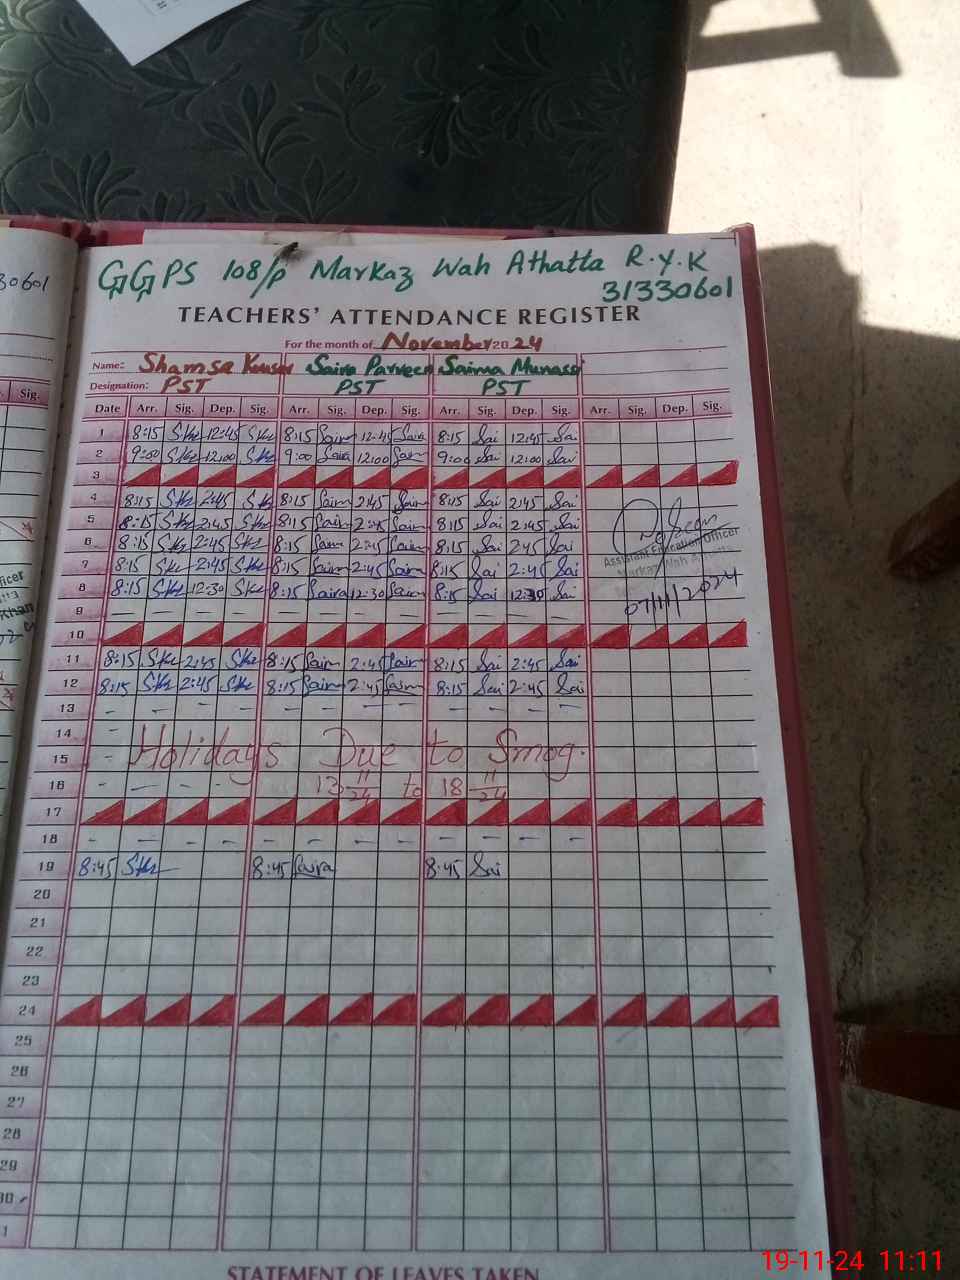 30601
GGPS 108/P Markaz Wah Athatta R.Y.K
31330601
TEACHERS' ATTENDANCE REGISTER
For the month of November 2024
Name: Shamsa Kausar Saira Parveen Saima Munawar
Designation: PST PST PST
Sig. Date Arr. Sig. Dep. Sig. Arr. Sig. Dep. Sig. Arr. Sig. Dep. Sig. Arr. Sig. Dep. Sig.
1 8:15 12:45 8:15 12:45 8:15 Sai 12:45 Sai
2 9:00 12:00 9:00 12:00 9:00 Sai 12:00 Sai
3
4 8:15 2:45 8:15 2:45 8:15 Sai 2:45 Sai
5 8:15 2:45 8:15 2:45 8:15 Sai 2:45 Sai
6 8:15 2:45 8:15 2:45 8:15 Sai 2:45 Sai
7 8:15 2:45 8:15 2:45 8:15 Sai 2:45 Sai
Assistant Education Officer
Markaz Wah Athatta
8 8:15 12:30 8:15 Saira 12:30 8:15 Sai 12:30 Sai
07/11/2024
9 - - - - - - - - - - - -
10
11 8:15 2:45 8:15 2:45 8:15 Sai 2:45 Sai
12 8:15 2:45 8:15 2:45 8:15 Sai 2:45 Sai
13 - - - - - - - - - - - -
14 -
15 - Holidays Due to Smog.
16 - - - - - 13 11/24 to 18 11/24
17
18 - - - - - - - - - - - -
19 8:45 8:45 Saira 8:45 Sai
20
21
22
23
24
25
26
27
28
29
30
STATEMENT OF LEAVES TAKEN
19-11-24 11:11